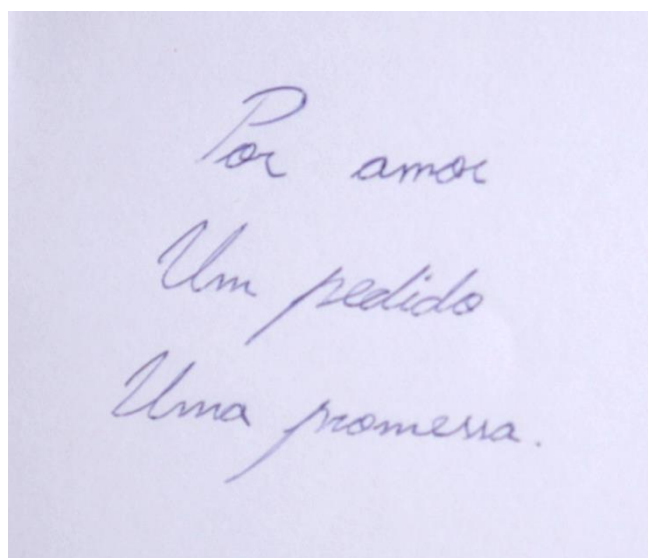 Por amor
Um pedido
Uma promessa.